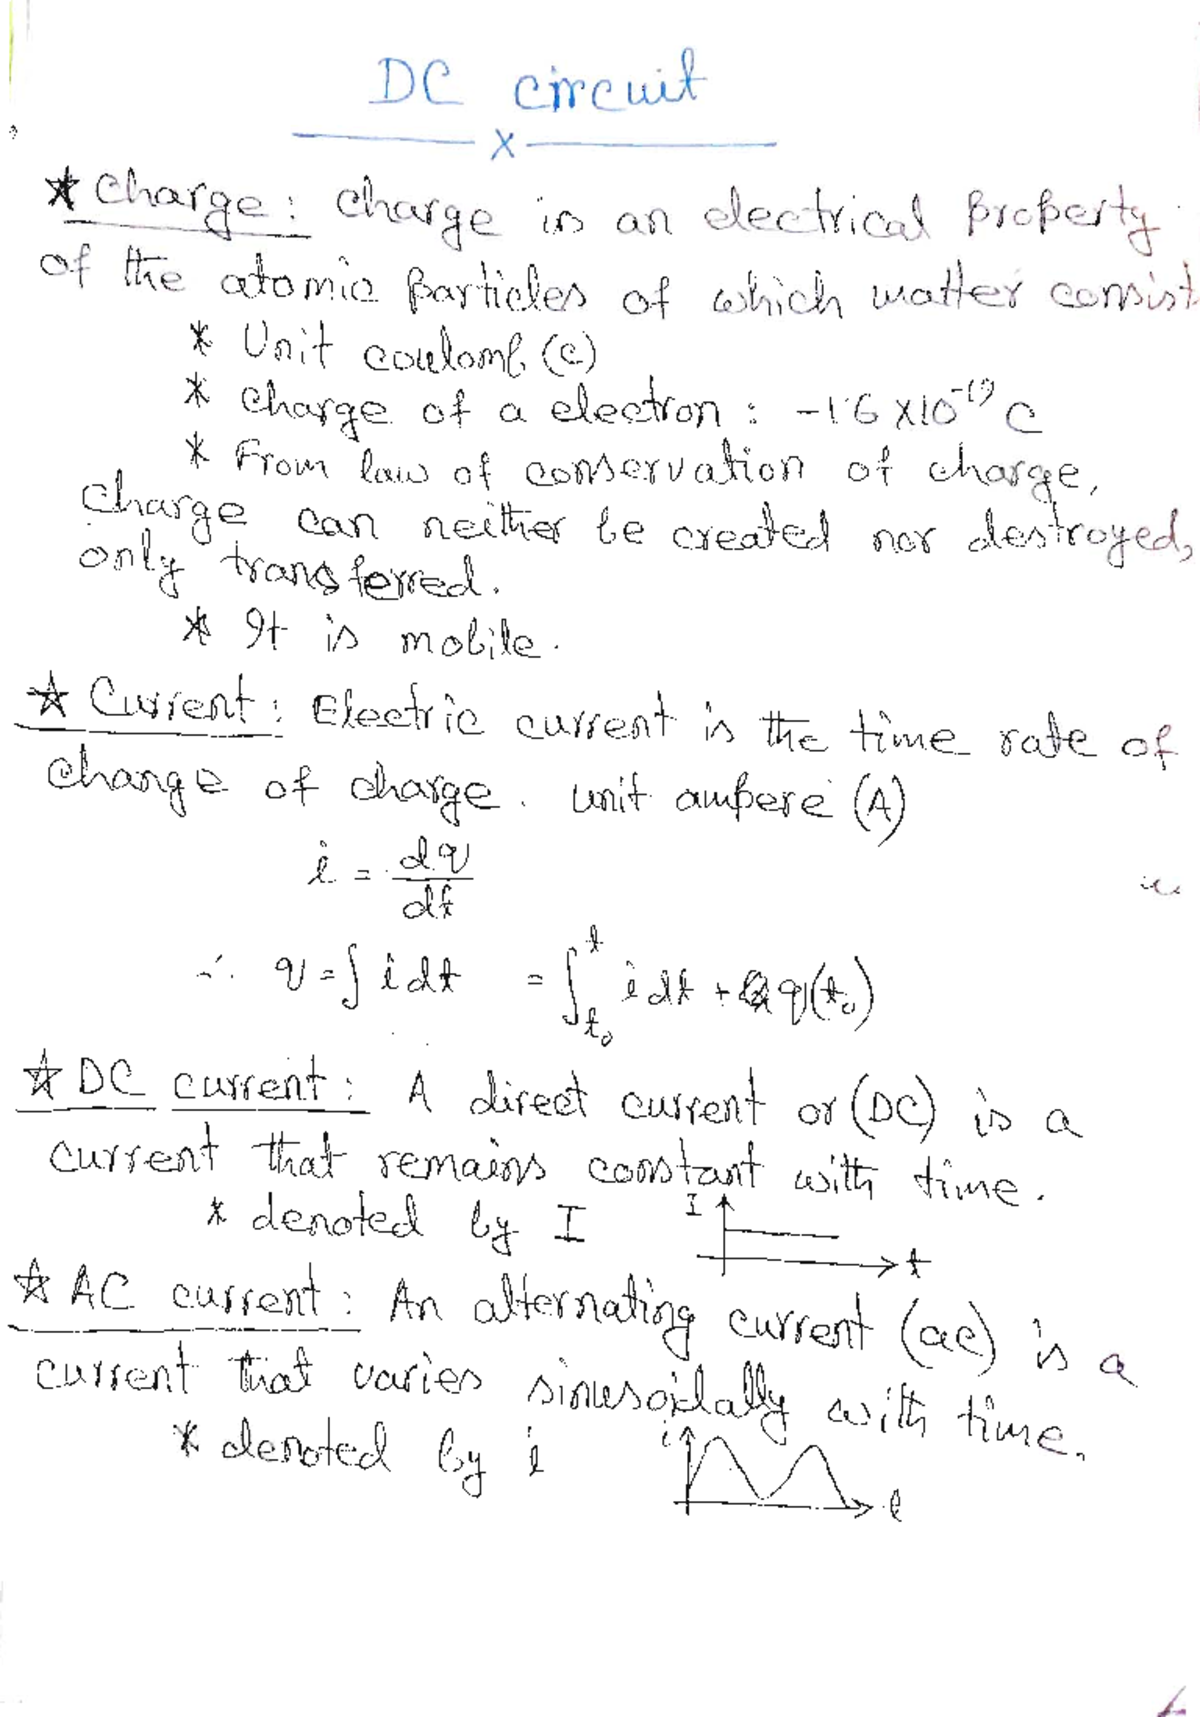 DC circuit
x
* Charge: Charge is an electrical property
of the atomic particles of which matter consist
* Unit coulomb (C)
* Charge of a electron: -1.6 X10^-19 C
* From law of conservation of charge,
charge can neither be created nor destroyed,
only transferred.
* It is mobile.
☆ Current: Electric current is the time rate of
change of charge. unit ampere (A)
i = dq/dt
∴ q = ∫ i dt = ∫_{t₀}^{t} i dt + q(t₀)
☆ DC current: A direct current or (DC) is a
current that remains constant with time.
* denoted by I
I
t
☆ AC current: An alternating current (ac) is a
current that varies sinusoidally with time.
* denoted by i
i
t